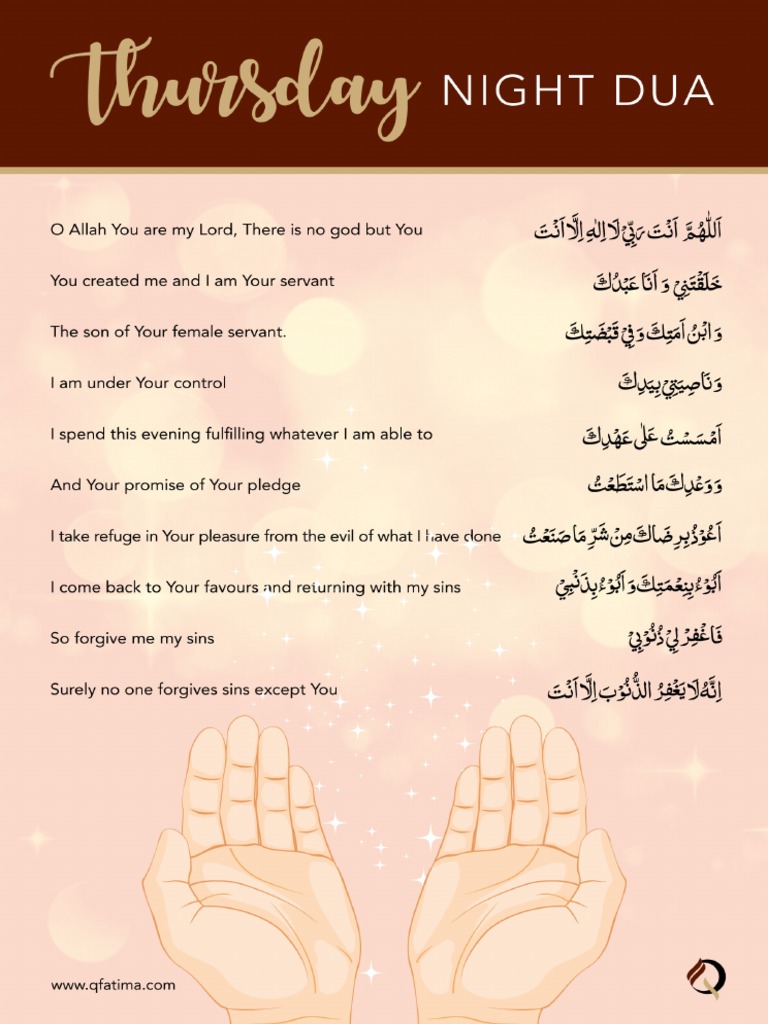 Thursday NIGHT DUA
O Allah You are my Lord, There is no god but You
اَللّٰهُمَّ اَنْتَ رَبِّيْ لَا اِلٰهَ اِلَّا اَنْتَ
You created me and I am Your servant
خَلَقْتَنِيْ وَ اَنَا عَبْدُكَ
The son of Your female servant.
وَ ابْنُ اَمَتِكَ وَ فِيْ قَبْضَتِكَ
I am under Your control
وَ نَاصِيَتِيْ بِيَدِكَ
I spend this evening fulfilling whatever I am able to
اَمْسَسْتُ عَلٰى عَهْدِكَ
And Your promise of Your pledge
وَ وَعْدِكَ مَا اسْتَطَعْتُ
I take refuge in Your pleasure from the evil of what I have done
اَعُوْذُ بِرِضَاكَ مِنْ شَرِّ مَا صَنَعْتُ
I come back to Your favours and returning with my sins
اَبُوْءُ بِنِعْمَتِكَ وَ اَبُوْءُ بِذَنْبِيْ
So forgive me my sins
فَاغْفِرْ لِيْ ذُنُوْبِيْ
Surely no one forgives sins except You
اِنَّهُ لَا يَغْفِرُ الذُّنُوْبَ اِلَّا اَنْتَ
www.qfatima.com